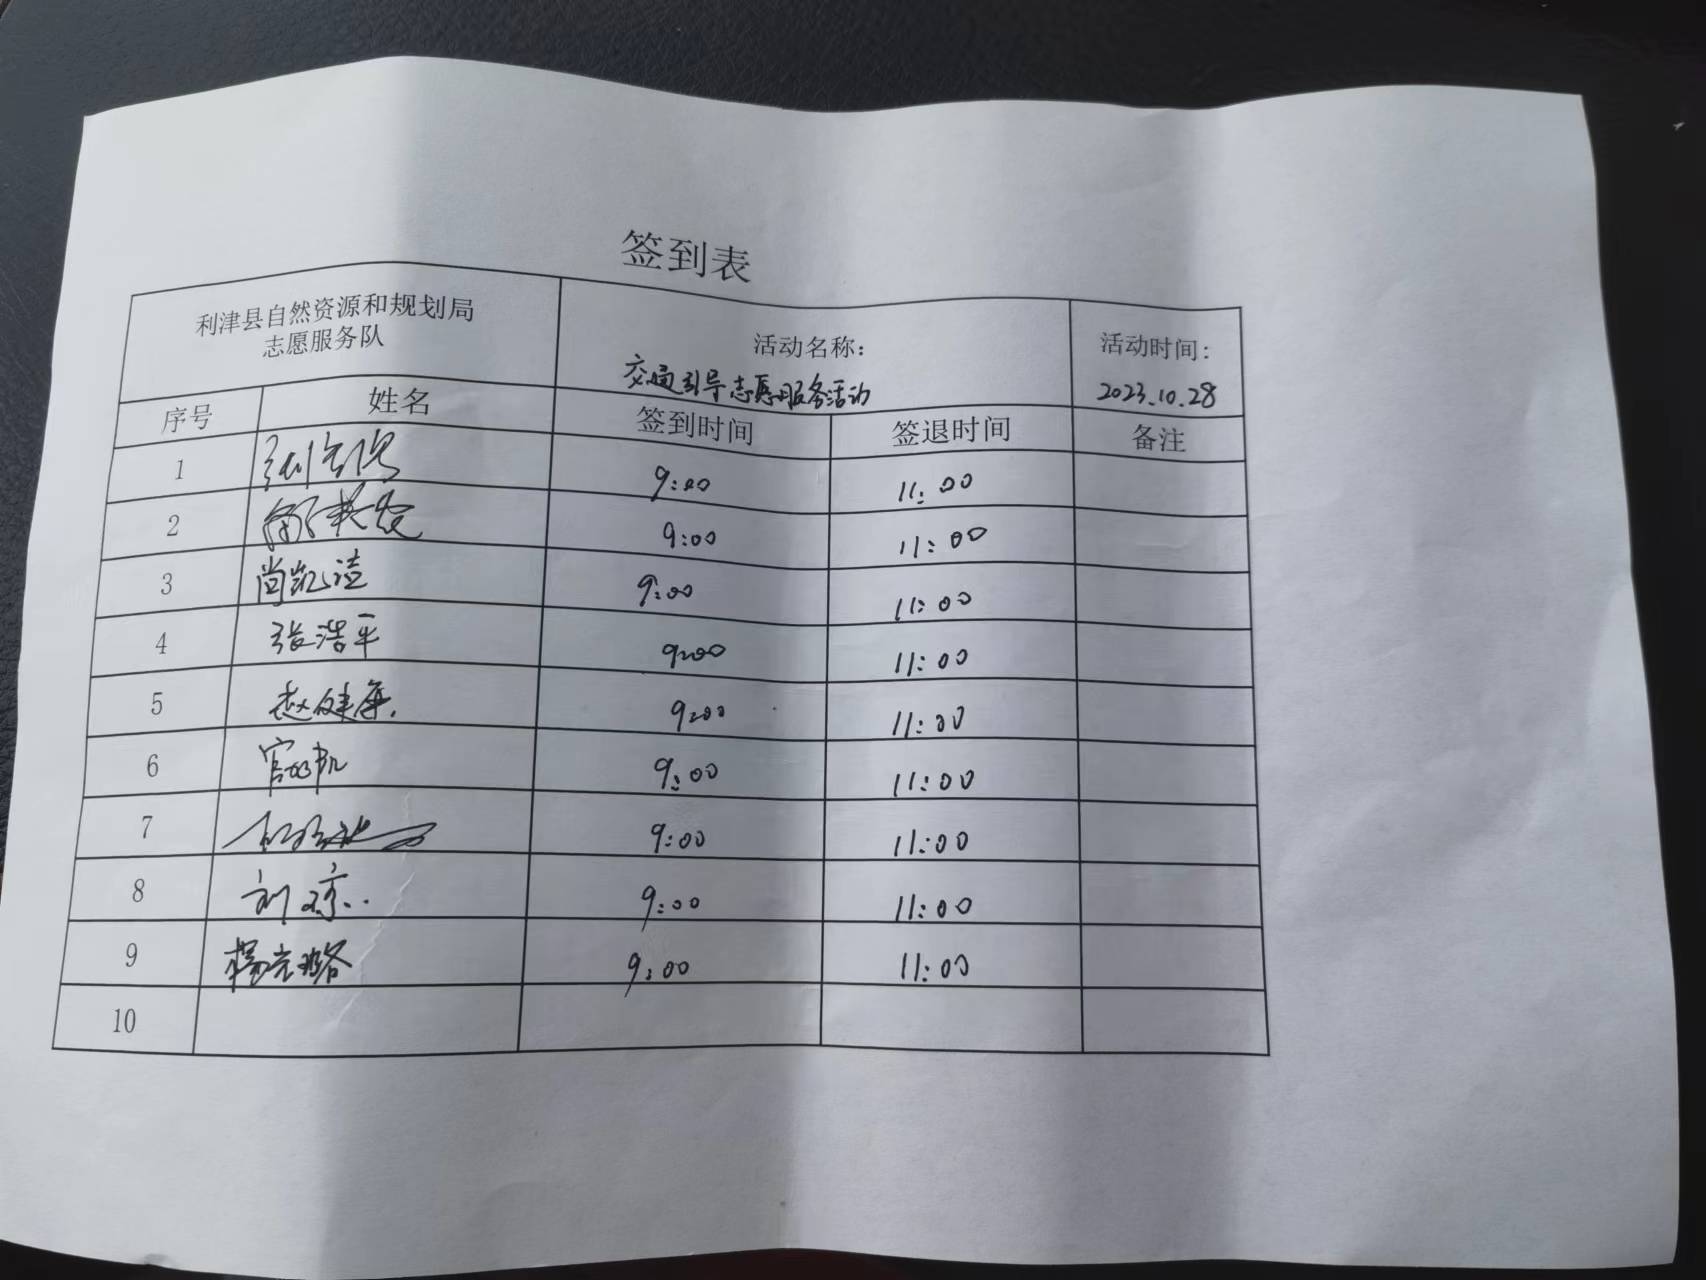 签到表
利津县自然资源和规划局
志愿服务队
活动名称:
交通引导志愿服务活动
活动时间:
2023.10.28
序号 姓名 签到时间 签退时间 备注
1 9:00 11:00
2 9:00 11:00
3 尚凯洁 9:00 11:00
4 张浩平 9:00 11:00
5 赵健 9:00 11:00
6 9:00 11:00
7 9:00 11:00
8 刘琼 9:00 11:00
9 杨 璐 9:00 11:00
10